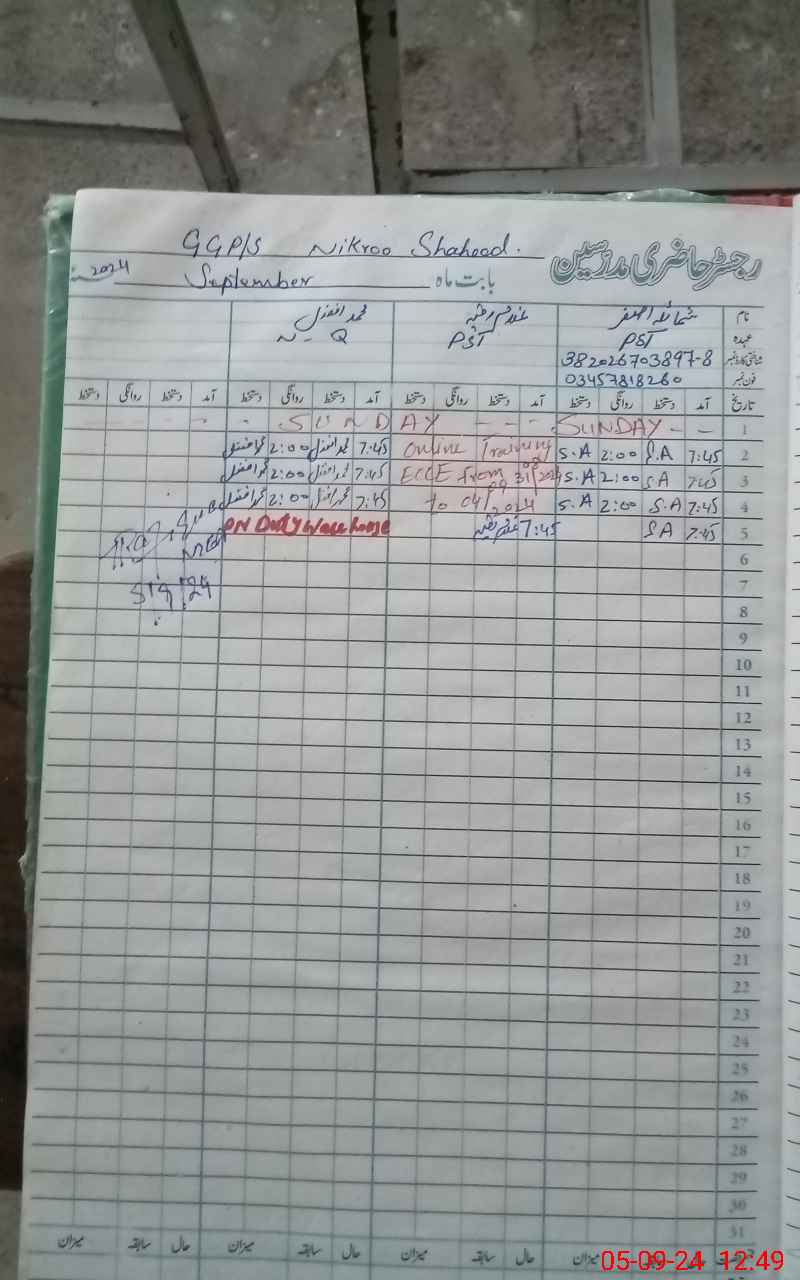 GGP/S Nikroo Shaheed.
رجسٹر حاضری مدرسین
بابت ماہ September 2024
نام شمائلہ اصغر محمد افضل
عہدہ PST PST N-Q
شناختی کارڈ نمبر 382026703897-8
فون نمبر 03457818260
تاریخ آمد دستخط روانگی دستخط آمد دستخط روانگی دستخط آمد دستخط روانگی دستخط آمد دستخط روانگی دستخط
1 SUNDAY - - - - SUNDAY - - -
2 7:45 S.A 2:00 S.A Online Training 7:45 محمد افضل 2:00 محمد افضل
3 7:45 S.A 2:00 S.A ECCE from 31 2024 7:45 محمد افضل 2:00 محمد افضل
4 7:45 S.A 2:00 S.A to 04/ 2024 7:45 محمد افضل 2:00 محمد افضل
5 7:45 S A 7:45 ON Duty Ware house
6
7
8
9
10
11
12
13
14
15
16
17
18
19
20
21
22
23
24
25
26
27
28
29
30
31
حال سابقہ میزان حال سابقہ میزان حال سابقہ میزان حال سابقہ میزان
05-09-24 12:49